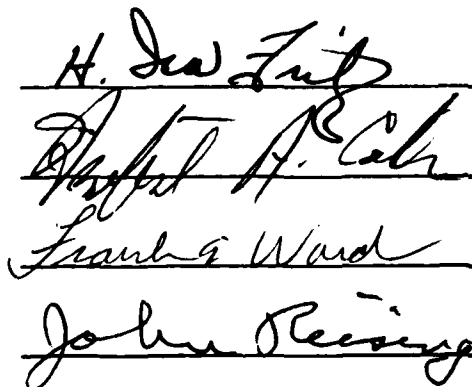 H. Ira Fritz
Robert A.
Frank A Ward
John Reising